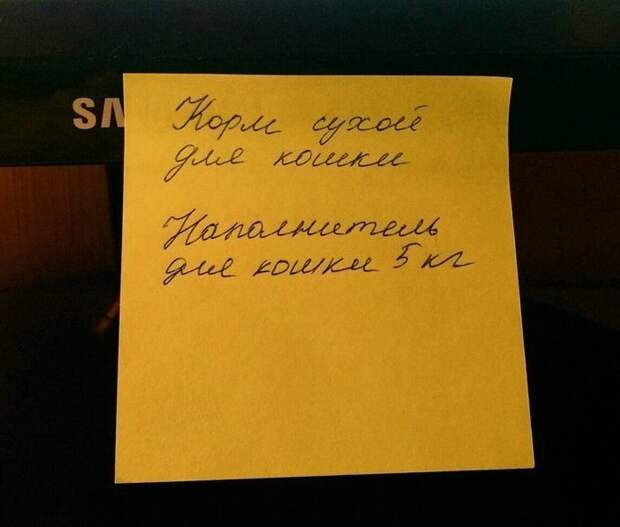 SA
Корм сухой
для кошки
Наполнитель
для кошки 5 кг